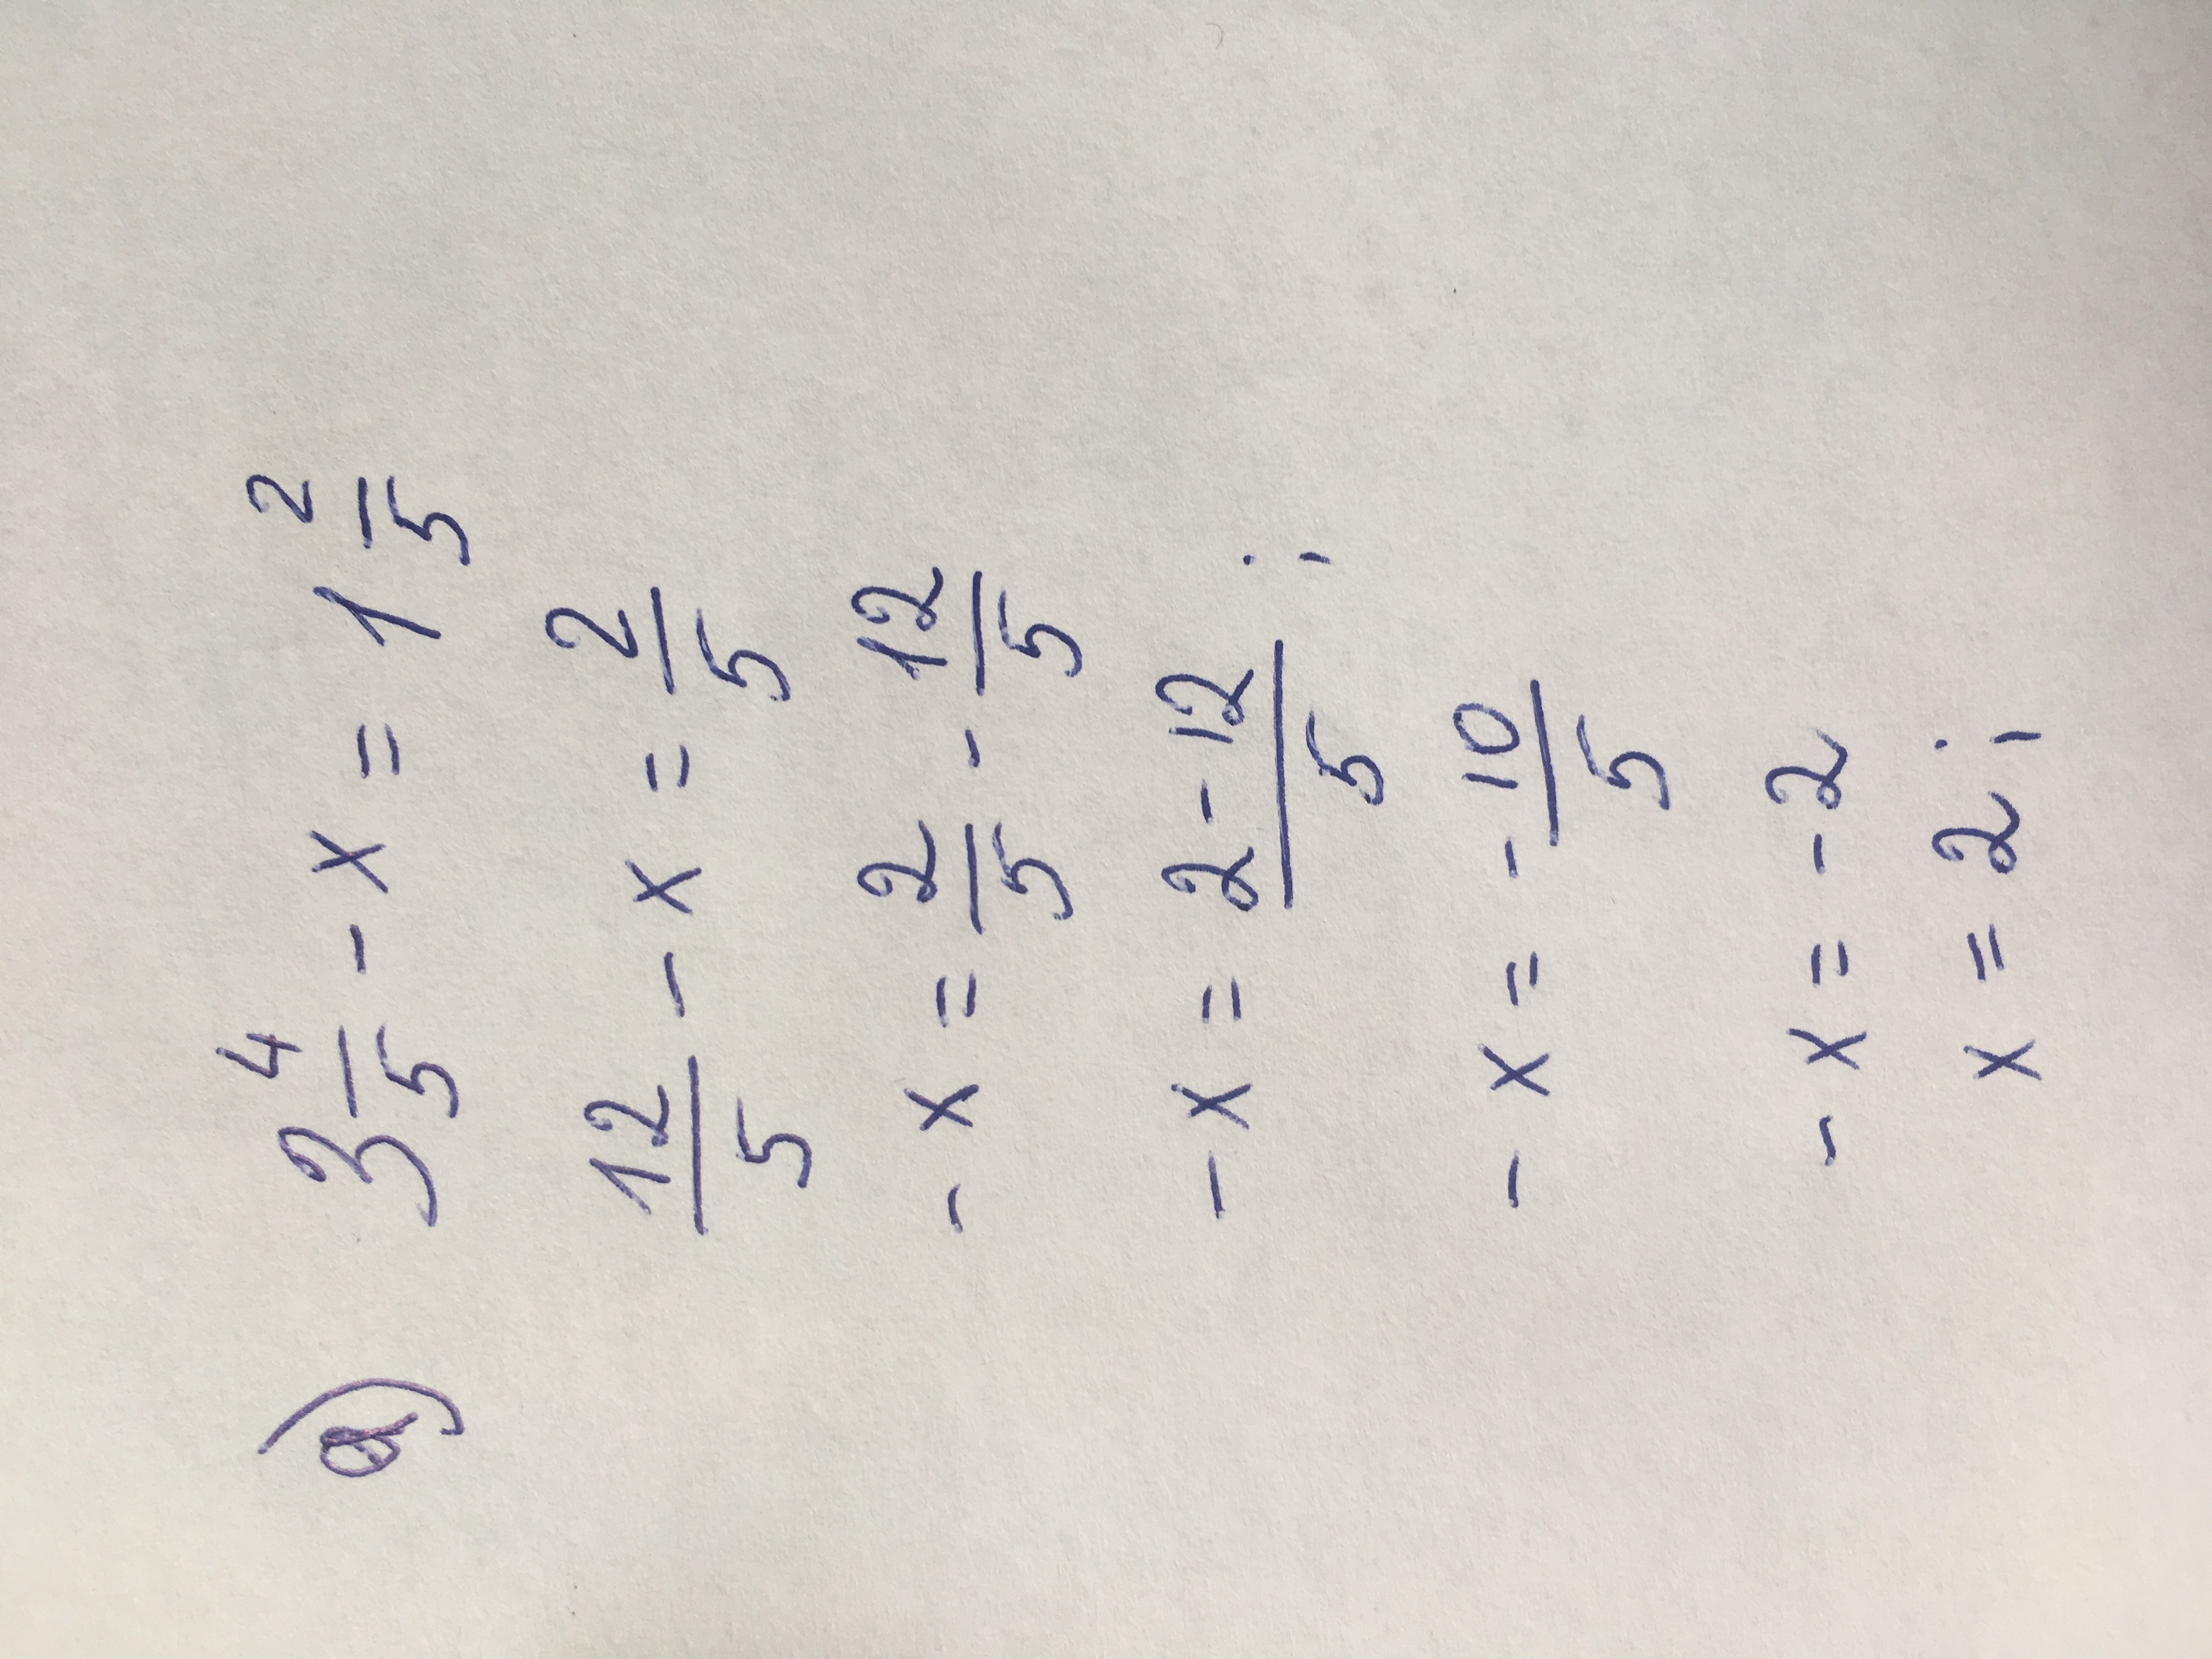 a) 3 4/5 - x = 1 2/5
12/5 - x = 2/5
- x = 2/5 - 12/5
- x = 2 - 12/5 ;
- x = - 10/5
- x = - 2
x = 2 ;